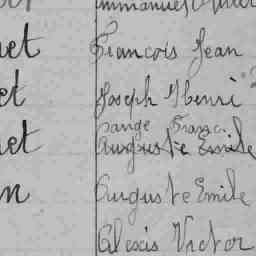 Immanuel
net François Jean
et Joseph Henri
Lange Franç
net Auguste Emile
n Auguste Emile
Alexis Victor